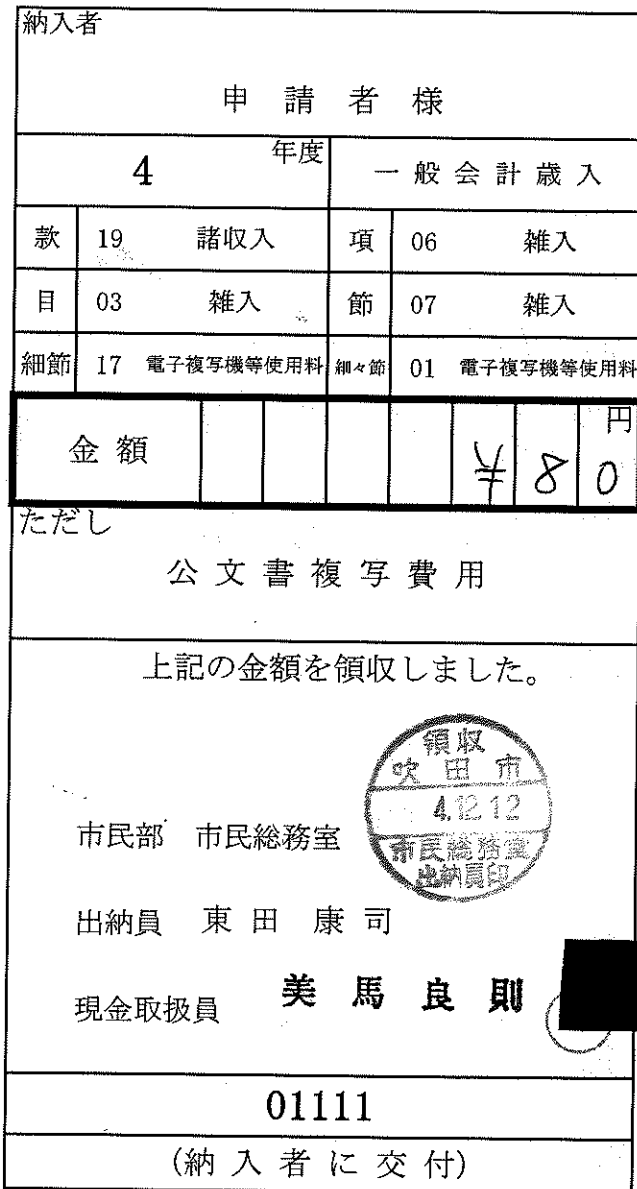 納入者
申請者様
4 年度 一般会計歳入
款 19 諸収入 項 06 雑入
目 03 雑入 節 07 雑入
細節 17 電子複写機等使用料 細々節 01 電子複写機等使用料
金額 ¥80 円
ただし
公文書複写費用
上記の金額を領収しました。
領収
吹田市
4.12.12
市民総務室
出納員印
市民部 市民総務室
出納員 東田 康司
現金取扱員 美馬良則
01111
(納入者に交付)